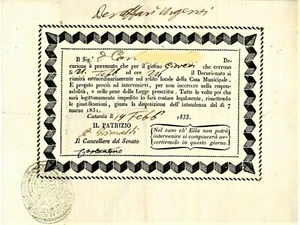 Per affari Urgenti
Il Sig.r
De-
curione è prevenuto che per il giorno Giovedì che correrà
li 21 Febb.o ad ore il Decurionato si
riunirà estraordinariamente nel solito locale della Casa Municipale.
È pregato perciò ad intervenirvi, per non incorrere nella respon-
sabilità, e nelle pene della Legge prescritte. Tutte le volte poi che
sarà legittimamente impedito lo farà costare legalmente, rimettendo
le giustificazioni, giusta la disposizione dell'Intendenza del dì 7
marzo 1831.
Catania li 19 Febb.o 1833.
IL PATRIZIO
Grimaldi
Il Cancelliere del Senato
Nel caso ch' Ella non potrà
intervenire si compiacerà av-
vertirmelo in questo giorno.